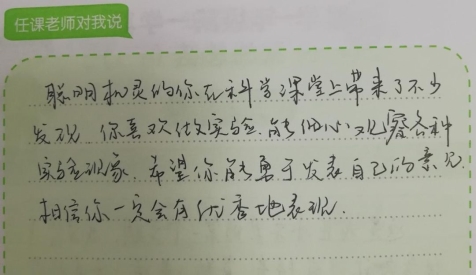 任课老师对我说
聪明机灵的你在科学课堂上带来了不少
发现.你喜欢做实验.能细心观察各种
实验现象.希望你能勇于发表自己的意见.
相信你一定会有优秀地表现.